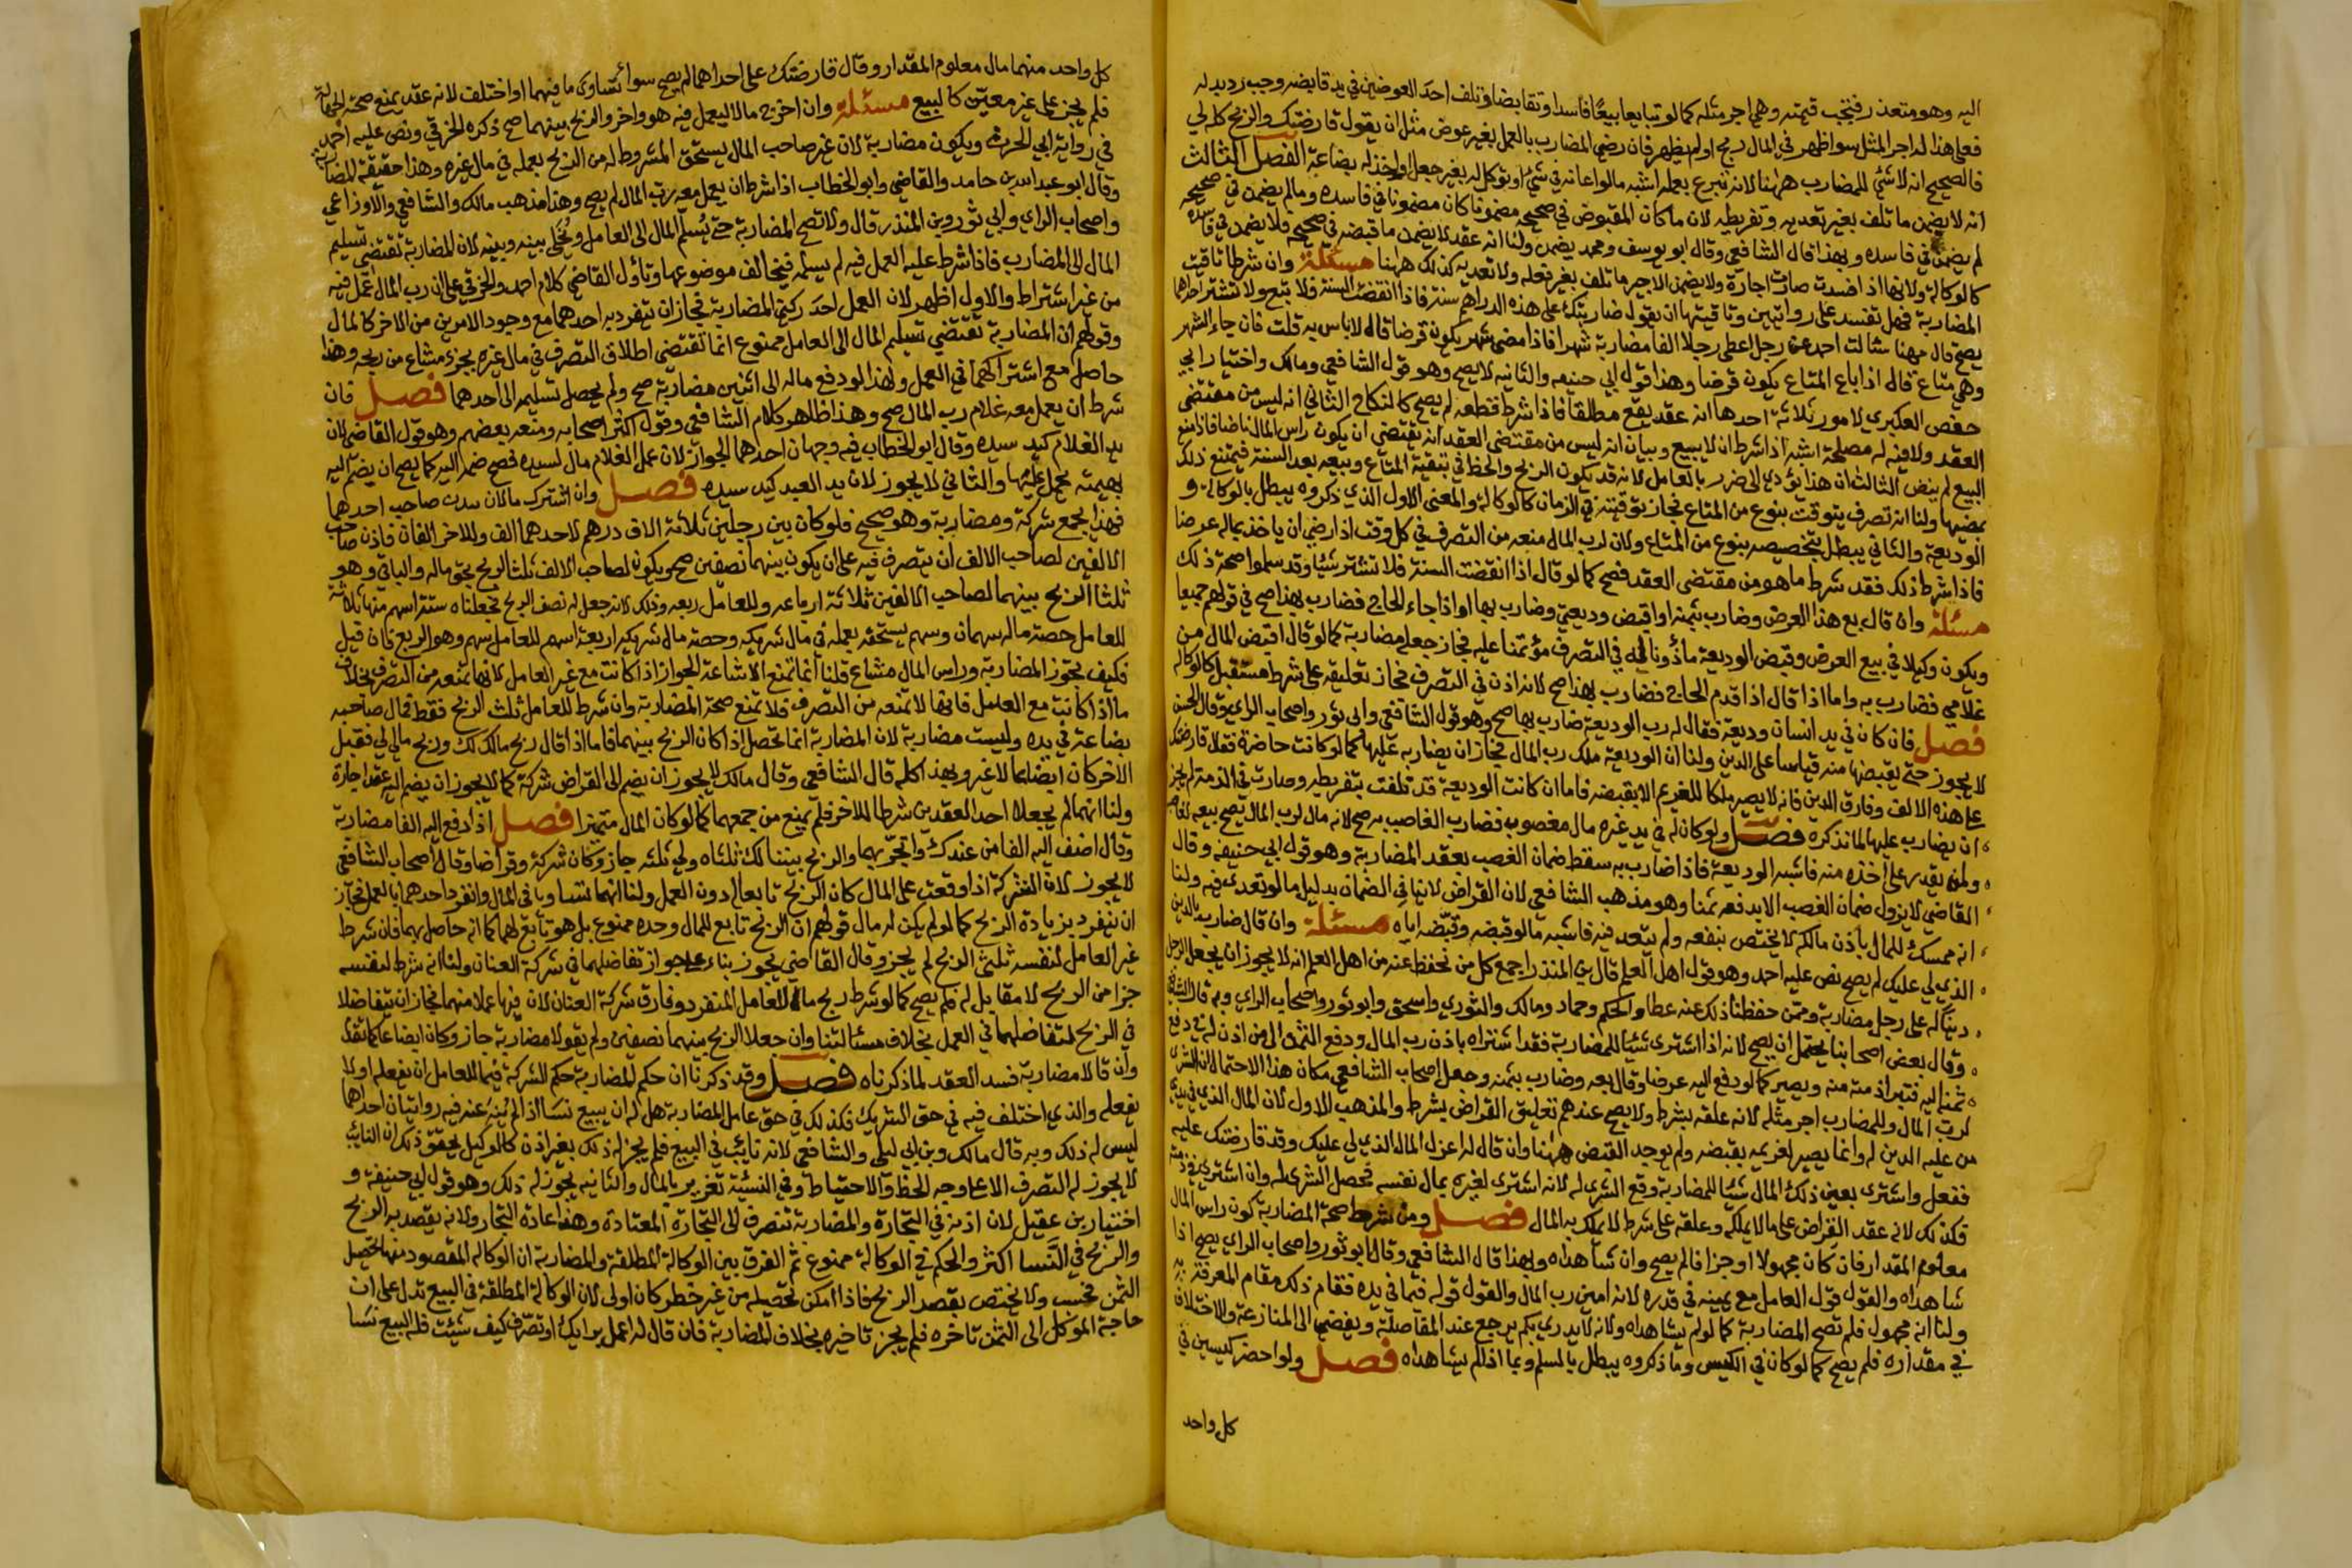 اليه وهو متعذر فتجب قيمته وهي اجر مثله كما لو تبايعا بيعًا فاسدا وتقابضا وتلف احد العوضين في يد قابضه وجب رد بدله
فعلى هذا له اجر المثل سوا ظهر في المال ربح او لم يظهر فان رضي المضارب بالعمل بغير عوض مثل ان يقول قارضتك والربح كله لي
فالصحيح انه لا شئ للمضارب ههنا لانه تبرع بعمله اشبه ما لو اعانه في شئ او توكل له بغير جعل او اخذ له بضاعة الفصل الثالث
انه لا يضمن ما تلف بغير تعديه وتفريطه لان ما كان المقبوض في صحيحه مضمونا كان مضمونا في فاسده وما لم يضمن في صحيحه
لم يضمن في فاسده وبهذا قال الشافعي وقال ابو يوسف ومحمد يضمن ولنا انه عقد لا يضمن ما قبضه في صحيحه فلا يضمن في فاسده
كالوكالة ولانها اذا فسدت صارت اجارة ولا يضمن الاجير ما تلف بغير فعله ولا تعديه كذلك ههنا مسئلة وان شرطا تاقيت
المضاربة فهل تفسد على روايتين وتاقيتها ان يقول ضاربتك على هذه الدراهم سنة فاذا انقضت السنة فلا تبع ولا تشتر احداهما
يصح قال مهنا سالت احمد عن رجل اعطى رجلا الفا مضاربة شهرا فاذا مضى شهر يكون قرضا قال لا باس به قلت فان جاء الشهر
وهي متاع قال اذا باع المتاع يكون قرضا وهذا قول ابي حنيفه والثانيه لا يصح وهو قول الشافعي ومالك واختيار ابي
حفص العكبري لامور ثلاثة احدها انه عقد يقع مطلقا فاذا شرط قطعه لم يصح كالنكاح الثاني انه ليس من مقتضى
العقد ولا فيه له مصلحة اشبه اذا شرط ان لا يبيع وبيان انه ليس من مقتضى العقد انه يقتضي ان يكون راس المال ناضا فاذا منع
البيع لم ينض الثالث ان هذا يؤدي الى ضرر بالعامل لانه قد يكون الربح والحظ في تبقية المتاع وبيعه بعد السنة فيمتنع ذلك
بمضيها ولنا انه تصرف يتوقت بنوع من المتاع فجاز توقيته في الزمان كالوكالة والمعنى الاول الذي ذكروه يبطل بالوكالة و
الوديعة والثاني يبطل بتخصيصه بنوع من المتاع ولان لرب المال منعه من التصرف في كل وقت اذا رضي ان ياخذ بماله عرضا
فاذا شرط ذلك فقد شرط ما هو من مقتضى العقد فصح كما لو قال اذا انقضت السنة فلا تشتر شيئا وقد سلموا صحة ذلك
مسئلة وان قال بع هذا العرض وضارب بثمنه او اقبض وديعتي وضارب بها او اذا جاء الحاج فضارب بهذا صح في قولهم جميعا
ويكون وكيلا في بيع العرض وقبض الوديعة مأذونا له في التصرف مؤتمنا عليه فجاز جعله مضاربة كما لو قال اقبض المال من
غلامي فضارب به واما اذا قال اذا قدم الحاج فضارب بهذا صح لانه اذن في التصرف فجاز تعليقه على شرط مستقبل كالوكالة
فصل فان كان في يد انسان وديعة فقال له رب الوديعة ضارب بها صح وهو قول الشافعي وابي ثور واصحاب الراي وقال الحسن
لا يجوز حتى يقبضها منه قياسا على الدين ولنا ان الوديعة ملك رب المال فجاز ان يضاربه عليها كما لو كانت حاضرة فقال قارضتك
على هذه الالف وفارق الدين فانه لا يصير ملكا للغريم الا بقبضه فاما ان كانت الوديعة قد تلفت بتفريطه وصارت في الذمة لم يجز
ان يضارب عليها لما نذكره فصل ولو كان له في يد غيره مال مغصوب فضارب الغاصب به صح لانه مال لرب المال يصح بيعه لغاصبه
ولمن يقدر على اخذه منه فاشبه الوديعة فاذا ضارب به سقط ضمان الغصب بعقد المضاربة وهو قول ابي حنيفه وقال
القاضي لا يزول ضمان الغصب الا بدفعه ثمنا وهو مذهب الشافعي لان القراض لا ينافي الضمان بدليل ما لو تعدى فيه ولنا
انه ممسك للمال باذن مالكه لا يختص بنفعه ولم يتعد فيه فاشبه ما لو قبضه وقبّضه اياه مسئلة وان قال ضارب بالدين
الذي لي عليك لم يصح نص عليه احمد وهو قول اهل العلم قال بن المنذر اجمع كل من نحفظ عنه من اهل العلم انه لا يجوز ان يجعل الرجل
دينا له على رجل مضاربة وممن حفظنا ذلك عنه عطا والحكم وحماد ومالك والثوري واسحق وابو ثور واصحاب الراي وبه قال الشافعي
وقال بعض اصحابنا يحتمل ان يصح لانه اذا اشترى شيئا للمضاربة فقد اشتراه باذن رب المال ودفع الثمن الى من اذن له في دفع
ثمنه اليه فتبرا ذمته منه ويصير كما لو دفع اليه عرضا وقال بعه وضارب بثمنه وجعل اصحاب الشافعي مكان هذا الاحتمال ان الشرى
لرب المال وللمضارب اجر مثله لانه علقه بشرط ولا يصح عندهم تعليق القراض بشرط والمذهب الاول لان المال الذي في يدي
من عليه الدين له وانما يصير لغريمه بقبضه ولم يوجد القبض ههنا وان قال له اعزل المال الذي لي عليك وقد قارضتك عليه
ففعل واشترى بعين ذلك المال شيئا للمضاربة وقع الشرى له لانه اشترى لغيره بمال نفسه فحصل الشرى له وان اشترى في ذمته
فكذلك لانه عقد القراض على ما لا يملكه وعلقه على شرط لا يملك به المال فصل ومن شرط صحة المضاربة كون راس المال
معلوم المقدار فان كان مجهولا او جزافا لم يصح وان شاهداه وبهذا قال الشافعي وقال ابو ثور واصحاب الراي يصح اذا
شاهداه والقول قول العامل مع يمينه في قدره لانه امين رب المال والقول قوله فيما في يده فقام ذلك مقام المعرفة به
ولنا انه مجهول فلم تصح المضاربة كما لو لم يشاهداه ولانه لا يدري بكم يرجع عند المفاصلة ويفضي الى المنازعة والاختلاف
في مقداره فلم يصح كما لو كان في الكيس وما ذكروه يبطل بالسلم وبما اذا لم يشاهداه فصل ولو احضر كيسين في
كل واحد
كل واحد منهما مال معلوم المقدار وقال قارضتك على احداهما لم يصح سوا تساوى ما فيهما او اختلف لانه عقد يمنع صحته الجهالة
فلم يجز على غير معيّن كالبيع مسئلة وان اخرج مالا ليعمل فيه هو واخر والربح بينهما صح ذكره الخرقي ونص عليه احمد
في رواية ابي الحرث ويكون مضاربة لان غير صاحب المال يستحق المشروط له من الربح بعمله في مال غيره وهذا حقيقة المضاربة
وقال ابو عبد الله بن حامد والقاضي وابو الخطاب اذا شرط ان يعمل معه رب المال لم يصح وهذا مذهب مالك والشافعي والاوزاعي
واصحاب الراي وابي ثور وبن المنذر قال ولا تصح المضاربة حتى يُسلّم المال الى العامل ويُخلّى بينه وبينه لان المضاربة تقتضي تسليم
المال الى المضارب فاذا شرط عليه العمل فيه لم يسلمه فيخالف موضوعها وتأول القاضي كلام احمد والخرقي على ان رب المال عمل فيه
من غير اشتراط والاول اظهر لان العمل احد ركني المضاربة فجاز ان ينفرد به احدهما مع وجود الامرين من الاخر كالمال
وقولهم ان المضاربة تقتضي تسليم المال الى العامل ممنوع انما تقتضي اطلاق التصرف في مال غيره بجزء مشاع من ربحه وهذا
حاصل مع اشتراكهما في العمل ولهذا لو دفع ماله الى اثنين مضاربة صح ولم يحصل تسليمه الى احدهما فصل فان
شرط ان يعمل معه غلام رب المال صح وهذا ظاهر كلام الشافعي وقول اكثر اصحابه ومنعه بعضهم وهو قول القاضي لان
يد الغلام كيد سيده وقال ابو الخطاب فيه وجهان احدهما الجواز لان عمل الغلام مال لسيده فصح ضمه اليه كما يصح ان يضم اليه
بهيمته يحمل عليها والثاني لا يجوز لان يد العبد كيد سيده فصل وان اشترك مالان ببدن صاحب احدهما
فهذا يجمع شركة ومضاربة وهو صحيح فلو كان بين رجلين ثلاثة الاف درهم لاحدهما الف وللاخر الفان فاذن صاحب
الالفين لصاحب الالف ان يتصرف فيه على ان يكون بينهما نصفين صح ويكون لصاحب الالف ثلث الربح بحق ماله والباقي وهو
ثلثا الربح بينهما لصاحب الالفين ثلاثة ارباعه وللعامل ربعه وذلك لانه جعل له نصف الربح فجعلناه ستة اسهم منها ثلاثة
للعامل حصة ماله سهمان وسهم يستحقه بعمله في مال شريكه وحصة مال شريكه اربعة اسهم للعامل سهم وهو الربع فان قيل
فكيف تجوز المضاربة وراس المال مشاع قلنا انما تمنع الاشاعة الجواز اذا كانت مع غير العامل لانها تمنعه من التصرف بخلاف
ما اذا كانت مع العامل فانها لا تمنعه من التصرف فلا تمنع صحة المضاربة وان شرط للعامل ثلث الربح فقط فمال صاحبه
بضاعة في يده وليست مضاربة لان المضاربة انما تحصل اذا كان الربح بينهما فاما اذا قال ربح مالك لك وربح مالي لي فقبل
الاخر كان ابضاعا لا غير وبهذا كله قال الشافعي وقال مالك لا يجوز ان يضم الى القراض شركة كما لا يجوز ان يضم اليه عقد اجارة
ولنا انهما لم يجعلا احد العقدين شرطا للاخر فلم يمنع من جمعهما كما لو كان المال متميزا فصل اذا دفع اليه الفا مضاربة
وقال اضف اليه الفا من عندك واتجر بهما والربح بيننا لك ثلثاه ولي ثلثه جاز وكان شركة وقراضا وقال اصحاب الشافعي
لا يجوز لان الشركة اذا وقعت على المال كان الربح تابعا له دون العمل ولنا انهما تساويا في المال وانفرد احدهما بالعمل فجاز
ان ينفرد بزيادة الربح كما لو لم يكن له مال قولهم ان الربح تابع للمال وحده ممنوع بل هو تابع لهما كما انه حاصل بهما فان شرط
غير العامل لنفسه ثلثي الربح لم يجز وقال القاضي يجوز بناء على جواز تفاضلهما في شركة العنان ولنا انه شرط لنفسه
جزا من الربح لا مقابل له فلم يصح كما لو شرط ربح مال العامل المنفرد وفارق شركة العنان لان فيها عملا منهما فجاز ان يتفاضلا
في الربح لتفاضلهما في العمل بخلاف مسئالتنا وان جعلا الربح بينهما نصفين ولم يقولا مضاربة جاز وكان ابضاعا كما تقدم
وان قالا مضاربة فسد العقد لما ذكرناه فصل وقد ذكرنا ان حكم المضاربة حكم الشركة فيما للعامل ان يفعله او لا
يفعله والذي اختلف فيه في حق الشريك فكذلك في حق عامل المضاربة هل له ان يبيع نسا اذا لم يُنه عنه فيه روايتان احداهما
ليس له ذلك وبه قال مالك وبن ابي ليلى والشافعي لانه نايب في البيع فلم يجز له ذلك بغير اذن كالوكيل يحقق ذلك ان النائب
لا يجوز له التصرف الا على وجه الحظ والاحتياط وفي النسئية تغرير بالمال والثانيه يجوز له ذلك وهو قول ابي حنيفة و
اختيار بن عقيل لان اذنه في التجارة والمضاربة تنصرف الى التجارة المعتادة وهذا عادة التجار ولانه يقصد به الربح
والربح في النسا اكثر والحكم في الوكالة ممنوع ثم الفرق بين الوكالة المطلقة والمضاربة ان الوكاله المقصود منها تحصيل
الثمن فحسب ولا يختص بقصد الربح فاذا امكن تحصيله من غير خطر كان اولى لان الوكالة المطلقة في البيع تدل على ان
حاجة الموكل الى الثمن ناجزه فلم يجز تاخيره بخلاف المضاربة فان قال له اعمل برايك او تصرّف كيف شيئت فله البيع نسا